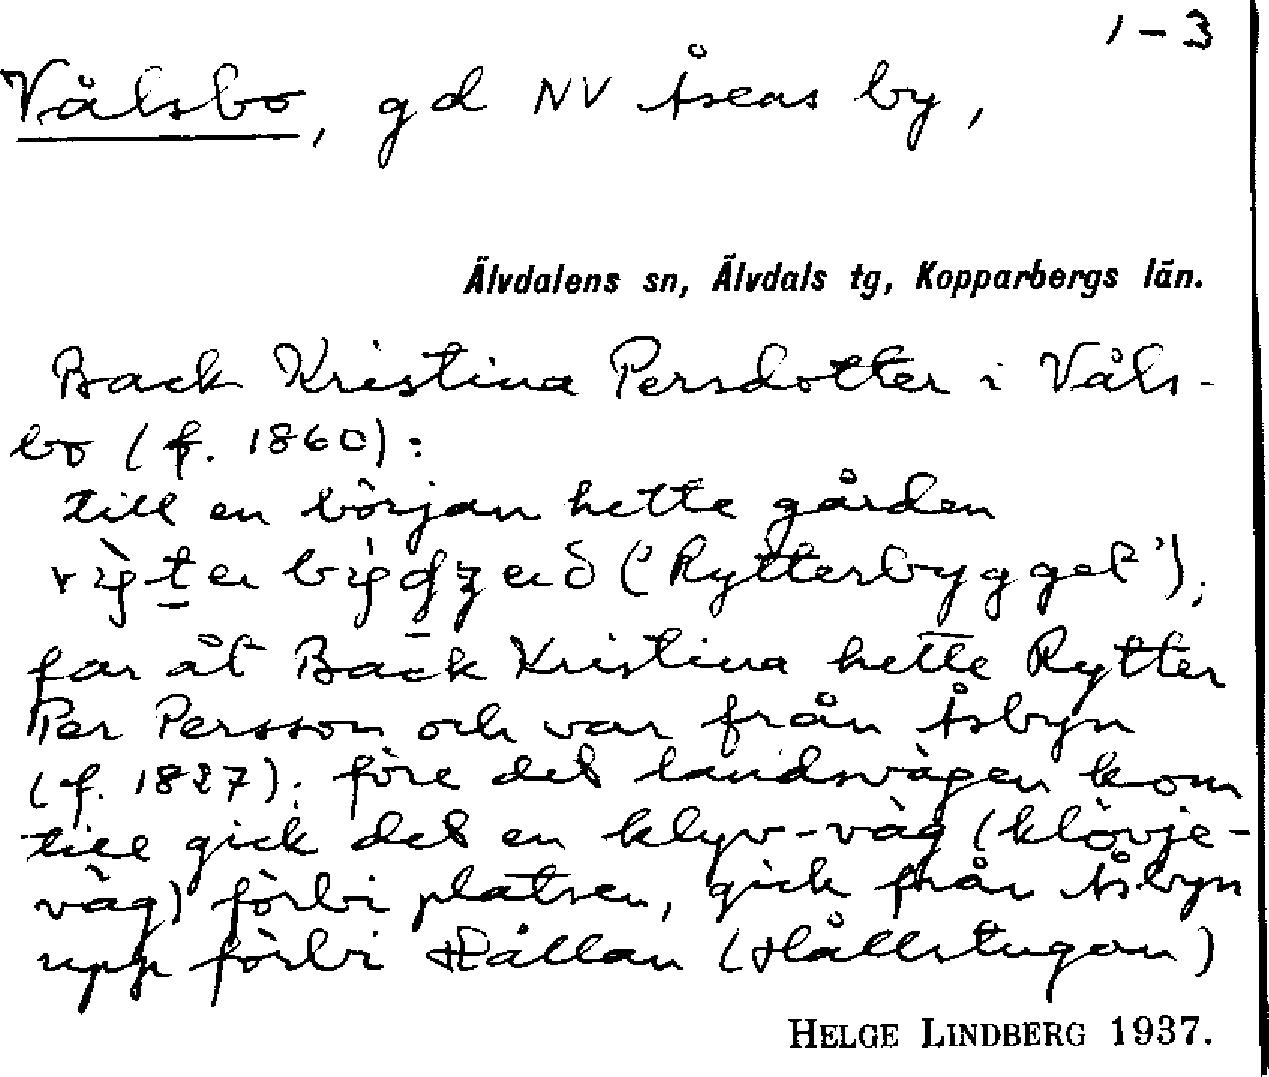 1-3
Vålsbo, gd NV Åseas by,
Älvdalens sn, Älvdals tg, Kopparbergs län.
Back Kristina Persdotter i Våls-
bo (f. 1860):
till en början hette gården
('Rytterbygget');
far åt Back Kristina hette Rytter
Per Persson och var från Åsbyn
(f. 1827); före det landsvägen kom
till gick det en klyv-väg (klövje-
väg) förbi platsen, gick från Åsbyn
upp förbi Hållan (Hållstugan)
HELGE LINDBERG 1937.